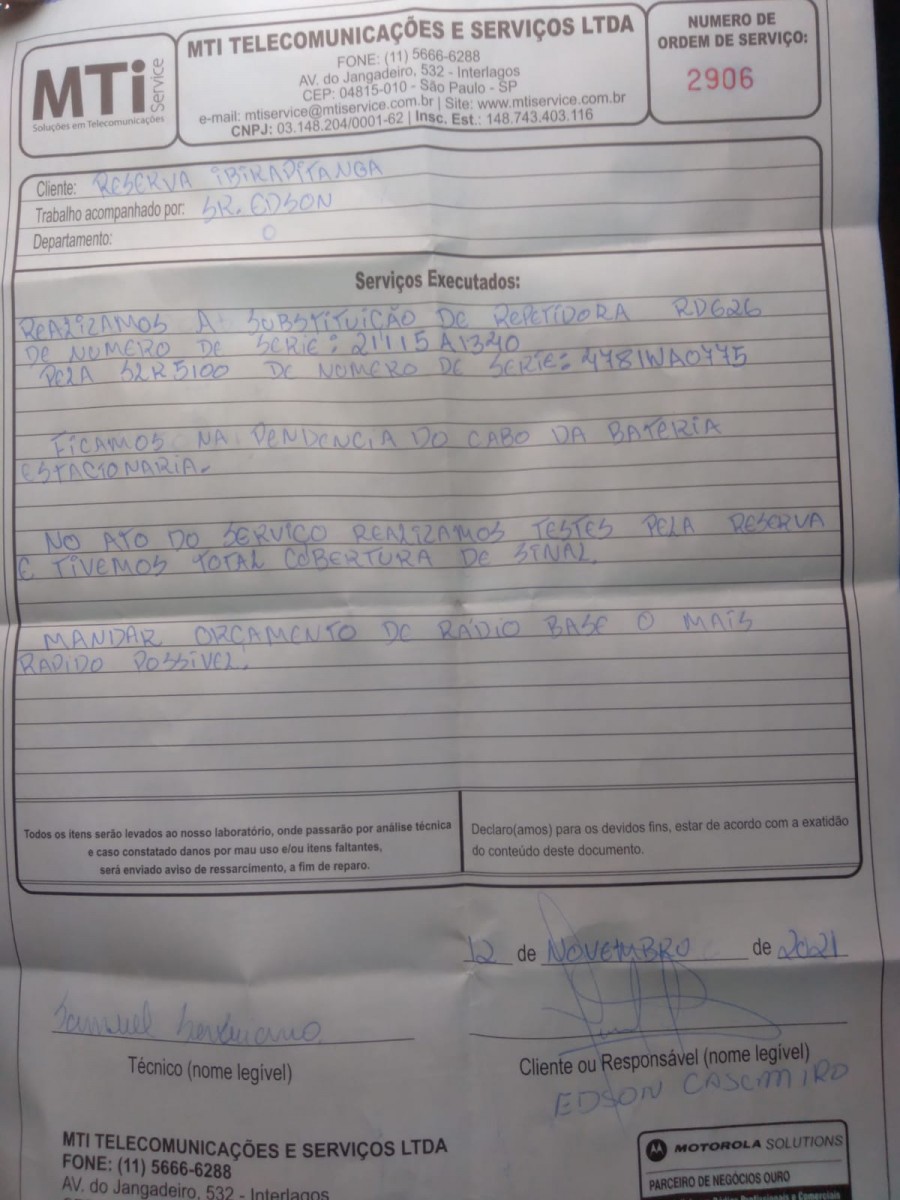 MTi Service
Soluções em Telecomunicações
MTI TELECOMUNICAÇÕES E SERVIÇOS LTDA
FONE: (11) 5666-6288
AV. do Jangadeiro, 532 - Interlagos
CEP: 04815-010 - São Paulo - SP
e-mail: mtiservice@mtiservice.com.br | Site: www.mtiservice.com.br
CNPJ: 03.148.204/0001-62 | Insc. Est.: 148.743.403.116
NUMERO DE
ORDEM DE SERVIÇO:
2906
Cliente: RESERVA IBIRAPITANGA
Trabalho acompanhado por: SR. EDSON
Departamento: O
Serviços Executados:
REALIZAMOS A SUBSTITUIÇÃO DE REPETIDORA RD626
DE NUMERO DE SERIE: 21115A1340
PELA SLR5100 DE NUMERO DE SERIE: 478IWA0775
FICAMOS NA PENDENCIA DO CABO DA BATERIA
ESTACIONARIA.
NO ATO DO SERVIÇO REALIZAMOS TESTES PELA RESERVA
E TIVEMOS TOTAL COBERTURA DE SINAL.
MANDAR ORÇAMENTO DE RÁDIO BASE O MAIS
RAPIDO POSSIVEL.
Todos os itens serão levados ao nosso laboratório, onde passarão por análise técnica
e caso constatado danos por mau uso e/ou itens faltantes,
será enviado aviso de ressarcimento, a fim de reparo.
Declaro(amos) para os devidos fins, estar de acordo com a exatidão
do conteúdo deste documento.
12 de NOVEMBRO de 2021
Samuel
Técnico (nome legível)
Cliente ou Responsável (nome legível)
EDSON CASEMIRO
MTI TELECOMUNICAÇÕES E SERVIÇOS LTDA
FONE: (11) 5666-6288
AV. do Jangadeiro, 532 - Interlagos
MOTOROLA SOLUTIONS
PARCEIRO DE NEGÓCIOS OURO